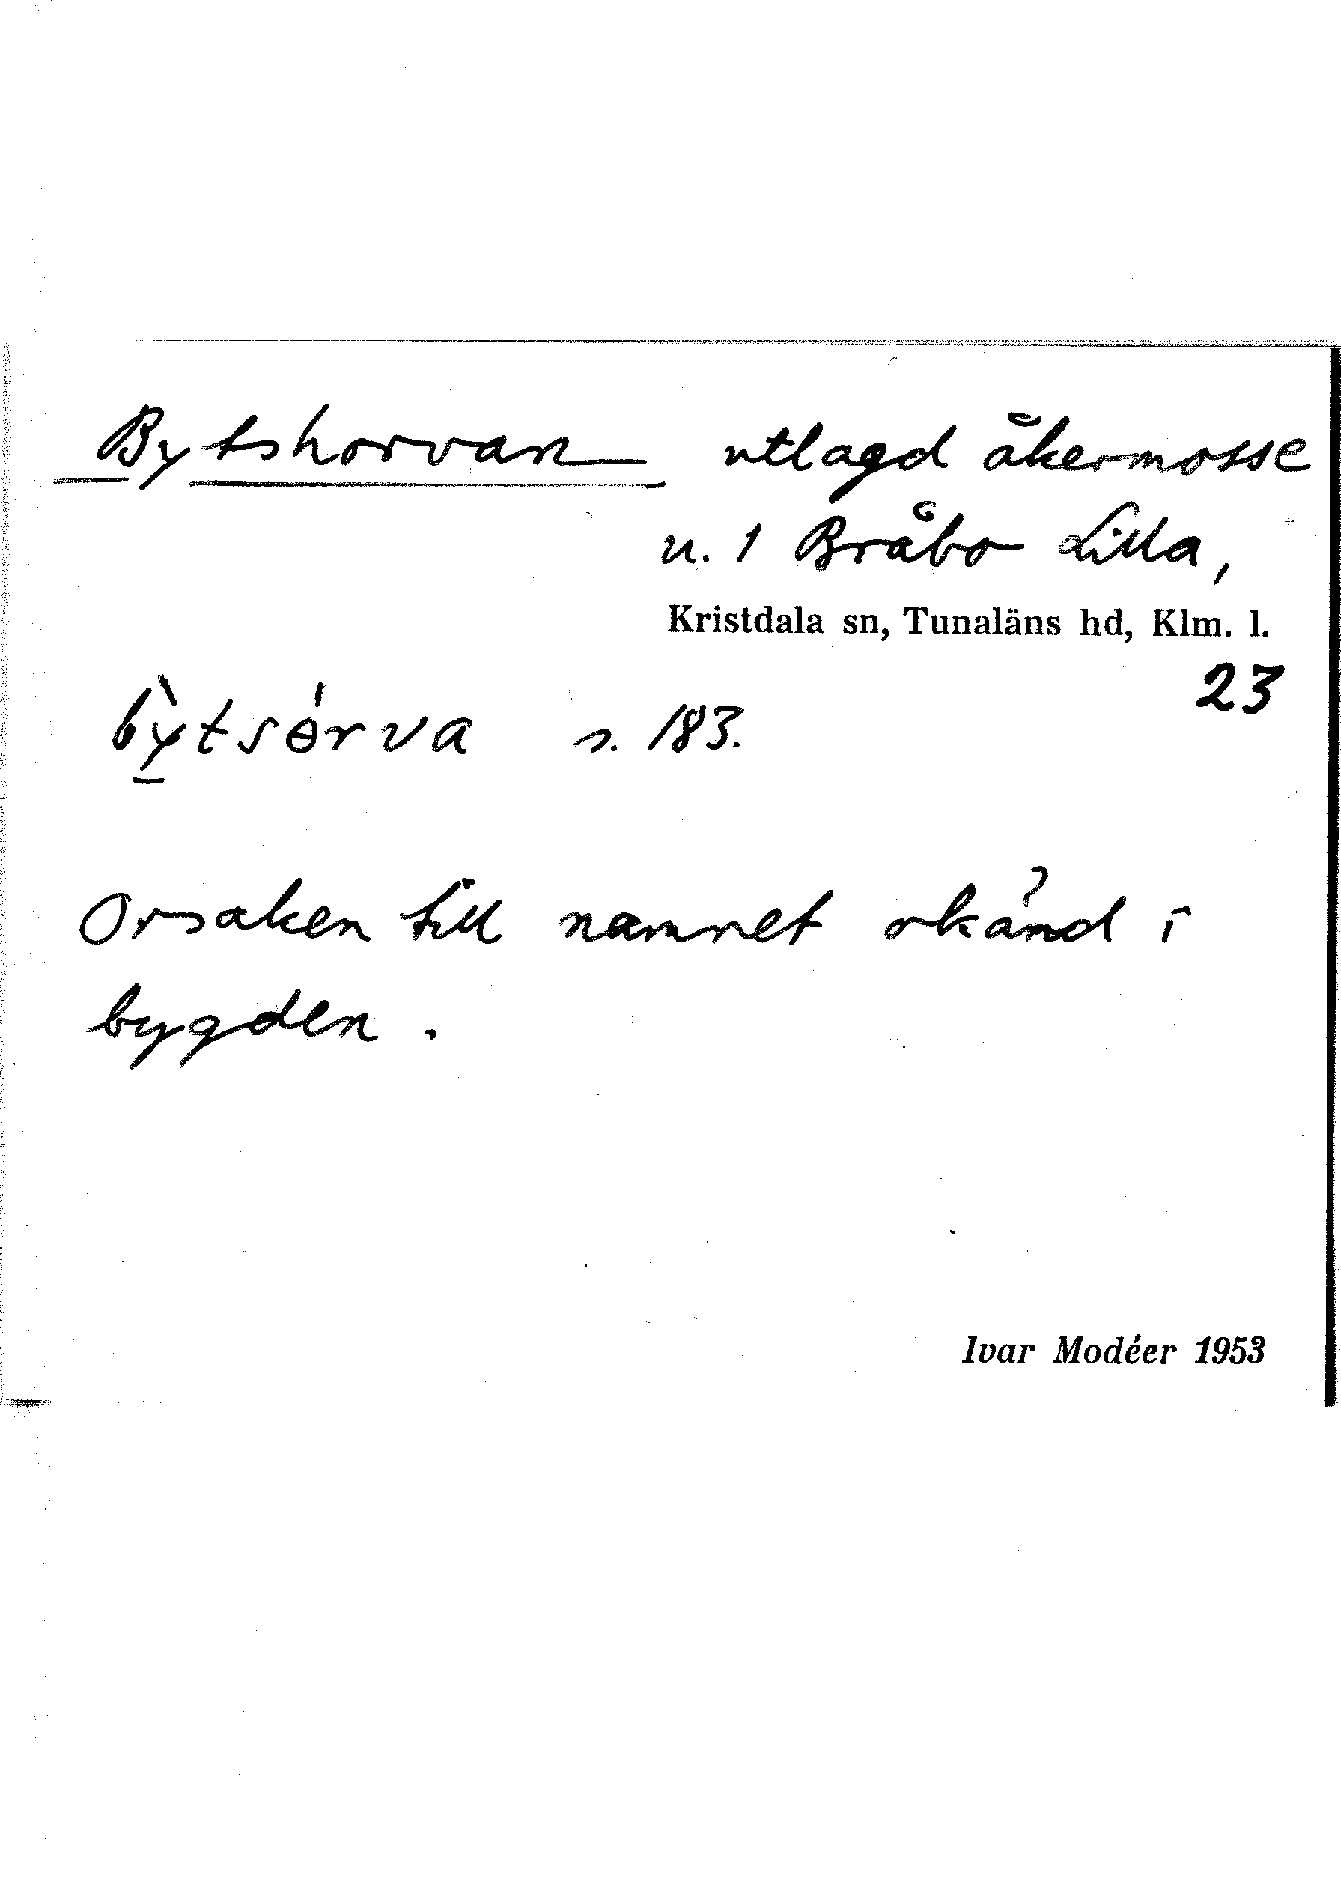 Bytshorvan utlagd åkermosse
u. 1 Bråbo Lilla,
Kristdala sn, Tunaläns hd, Klm. l.
23
bỳtsɵ́rva s. 183.
Orsaken till namnet okänd i
bygden.
Ivar Modéer 1953